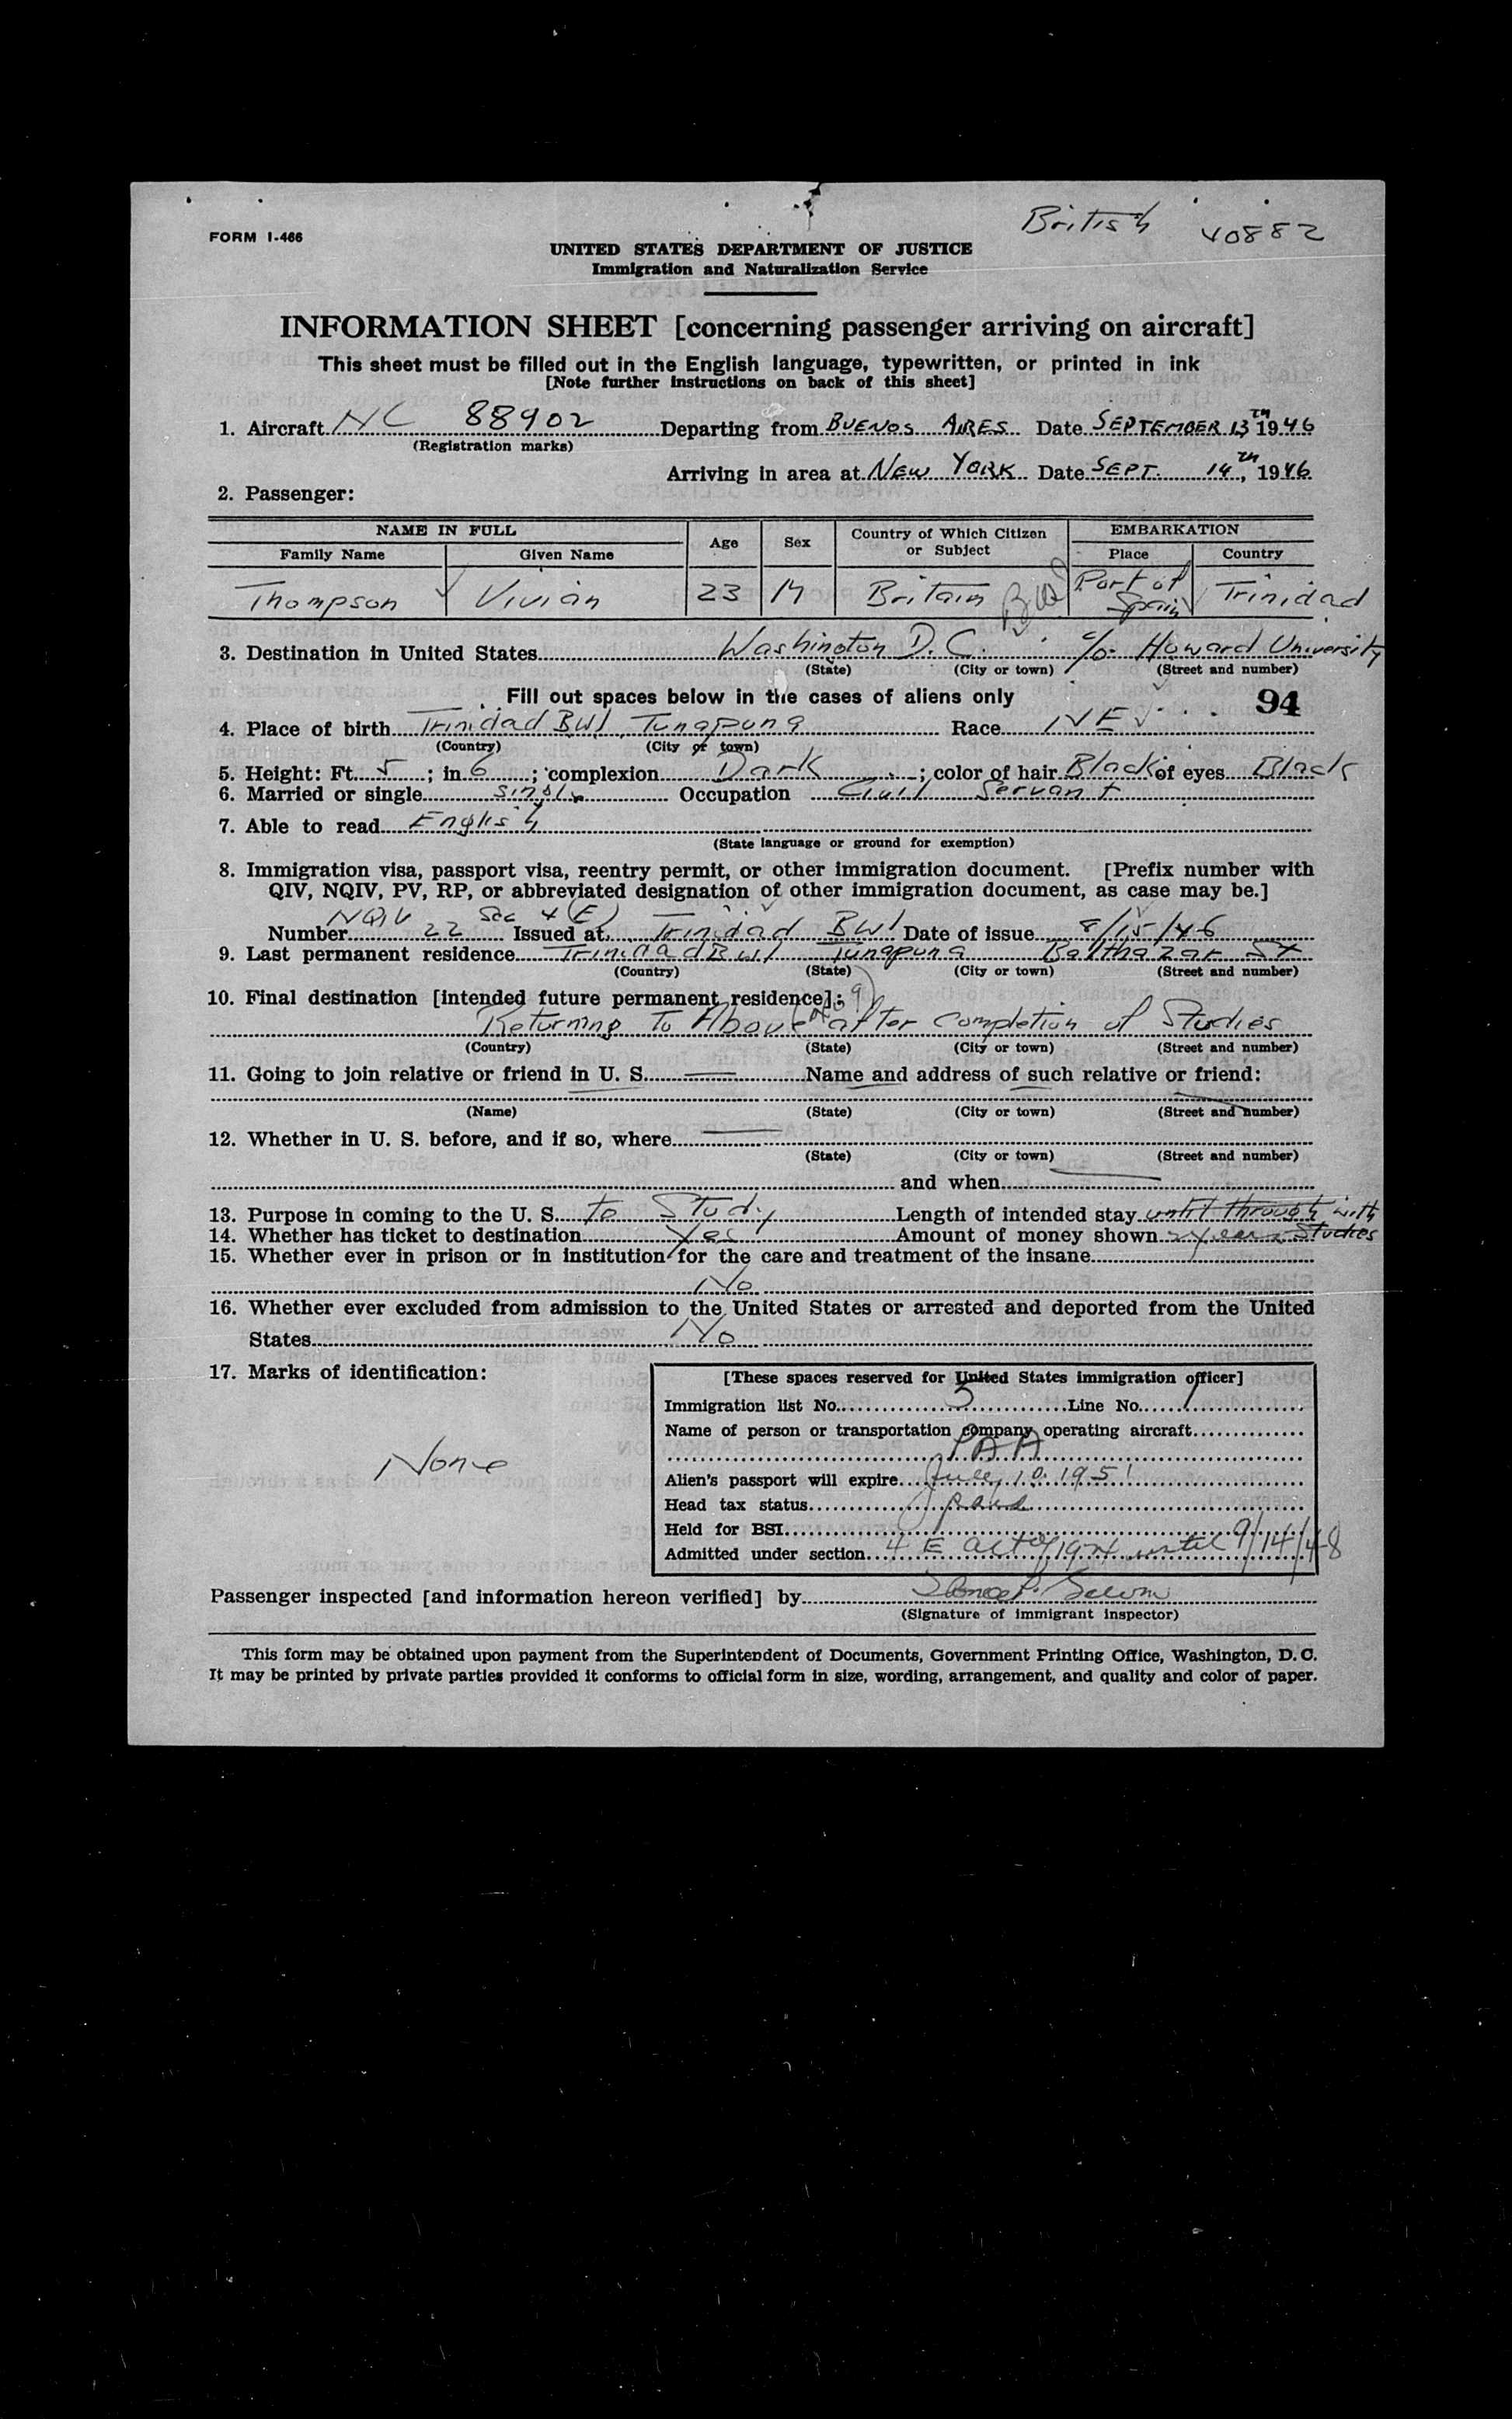 British 40882
FORM I-466
UNITED STATES DEPARTMENT OF JUSTICE
Immigration and Naturalization Service
INFORMATION SHEET [concerning passenger arriving on aircraft]
This sheet must be filled out in the English language, typewritten, or printed in ink
[Note further instructions on back of this sheet]
1. Aircraft NC 88902 Departing from BUENOS AIRES Date SEPTEMBER 13th 1946
(Registration marks)
Arriving in area at NEW YORK Date SEPT. 14th, 1946
2. Passenger:
NAME IN FULL Age Sex Country of Which Citizen or Subject EMBARKATION
Family Name Given Name Place Country
Thompson Vivian 23 M Britain BWI Port of Spain Trinidad
3. Destination in United States Washington D.C. c/o Howard University
(State) (City or town) (Street and number)
Fill out spaces below in the cases of aliens only 94
4. Place of birth Trinidad BWI Tunapuna Race NEJ
(Country) (City or town)
5. Height: Ft. 5; in 6; complexion Dark; color of hair Black of eyes Black
6. Married or single single Occupation Civil Servant
7. Able to read English
(State language or ground for exemption)
8. Immigration visa, passport visa, reentry permit, or other immigration document. [Prefix number with
QIV, NQIV, PV, RP, or abbreviated designation of other immigration document, as case may be.]
NQIV Sec 4 (E)
Number 22 Issued at Trinidad BWI Date of issue 8/15/46
9. Last permanent residence Trinidad BWI Tunapuna Balthazar St
(Country) (State) (City or town) (Street and number)
10. Final destination [intended future permanent residece]:
Returning To Above (No 9) after completion of Studies
(Country) (State) (City or town) (Street and number)
11. Going to join relative or friend in U. S. Name and address of such relative or friend:
(Name) (State) (City or town) (Street and number)
12. Whether in U. S. before, and if so, where
(State) (City or town) (Street and number)
and when
13. Purpose in coming to the U. S. to Study Length of intended stay until through with
14. Whether has ticket to destination Yes Amount of money shown 2 years Studies
15. Whether ever in prison or in institution for the care and treatment of the insane
No
16. Whether ever excluded from admission to the United States or arrested and deported from the United
States No
17. Marks of identification:
None
[These spaces reserved for United States immigration officer]
Immigration list No. 3 Line No. 1
Name of person or transportation company operating aircraft
PAA
Alien's passport will expire July 10 1951
Head tax status
Held for BSI
Admitted under section 4 E act of 1924 until 9/14/48
Passenger inspected [and information hereon verified] by
(Signature of immigrant inspector)
This form may be obtained upon payment from the Superintendent of Documents, Government Printing Office, Washington, D. C.
It may be printed by private parties provided it conforms to official form in size, wording, arrangement, and quality and color of paper.